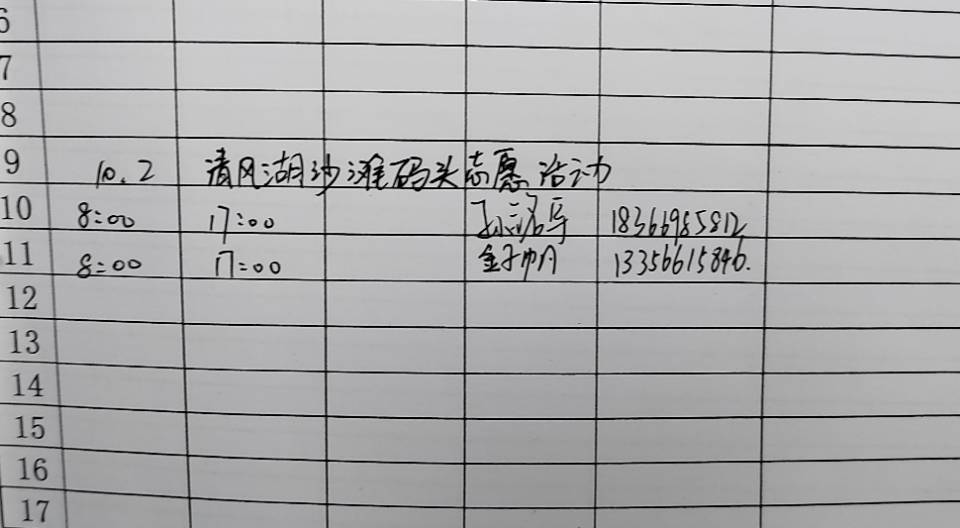 6
7
8
9 10.2 清风湖沙滩码头志愿活动
10 8:00 17:00 18366985812
11 8:00 17:00 13356615846.
12
13
14
15
16
17